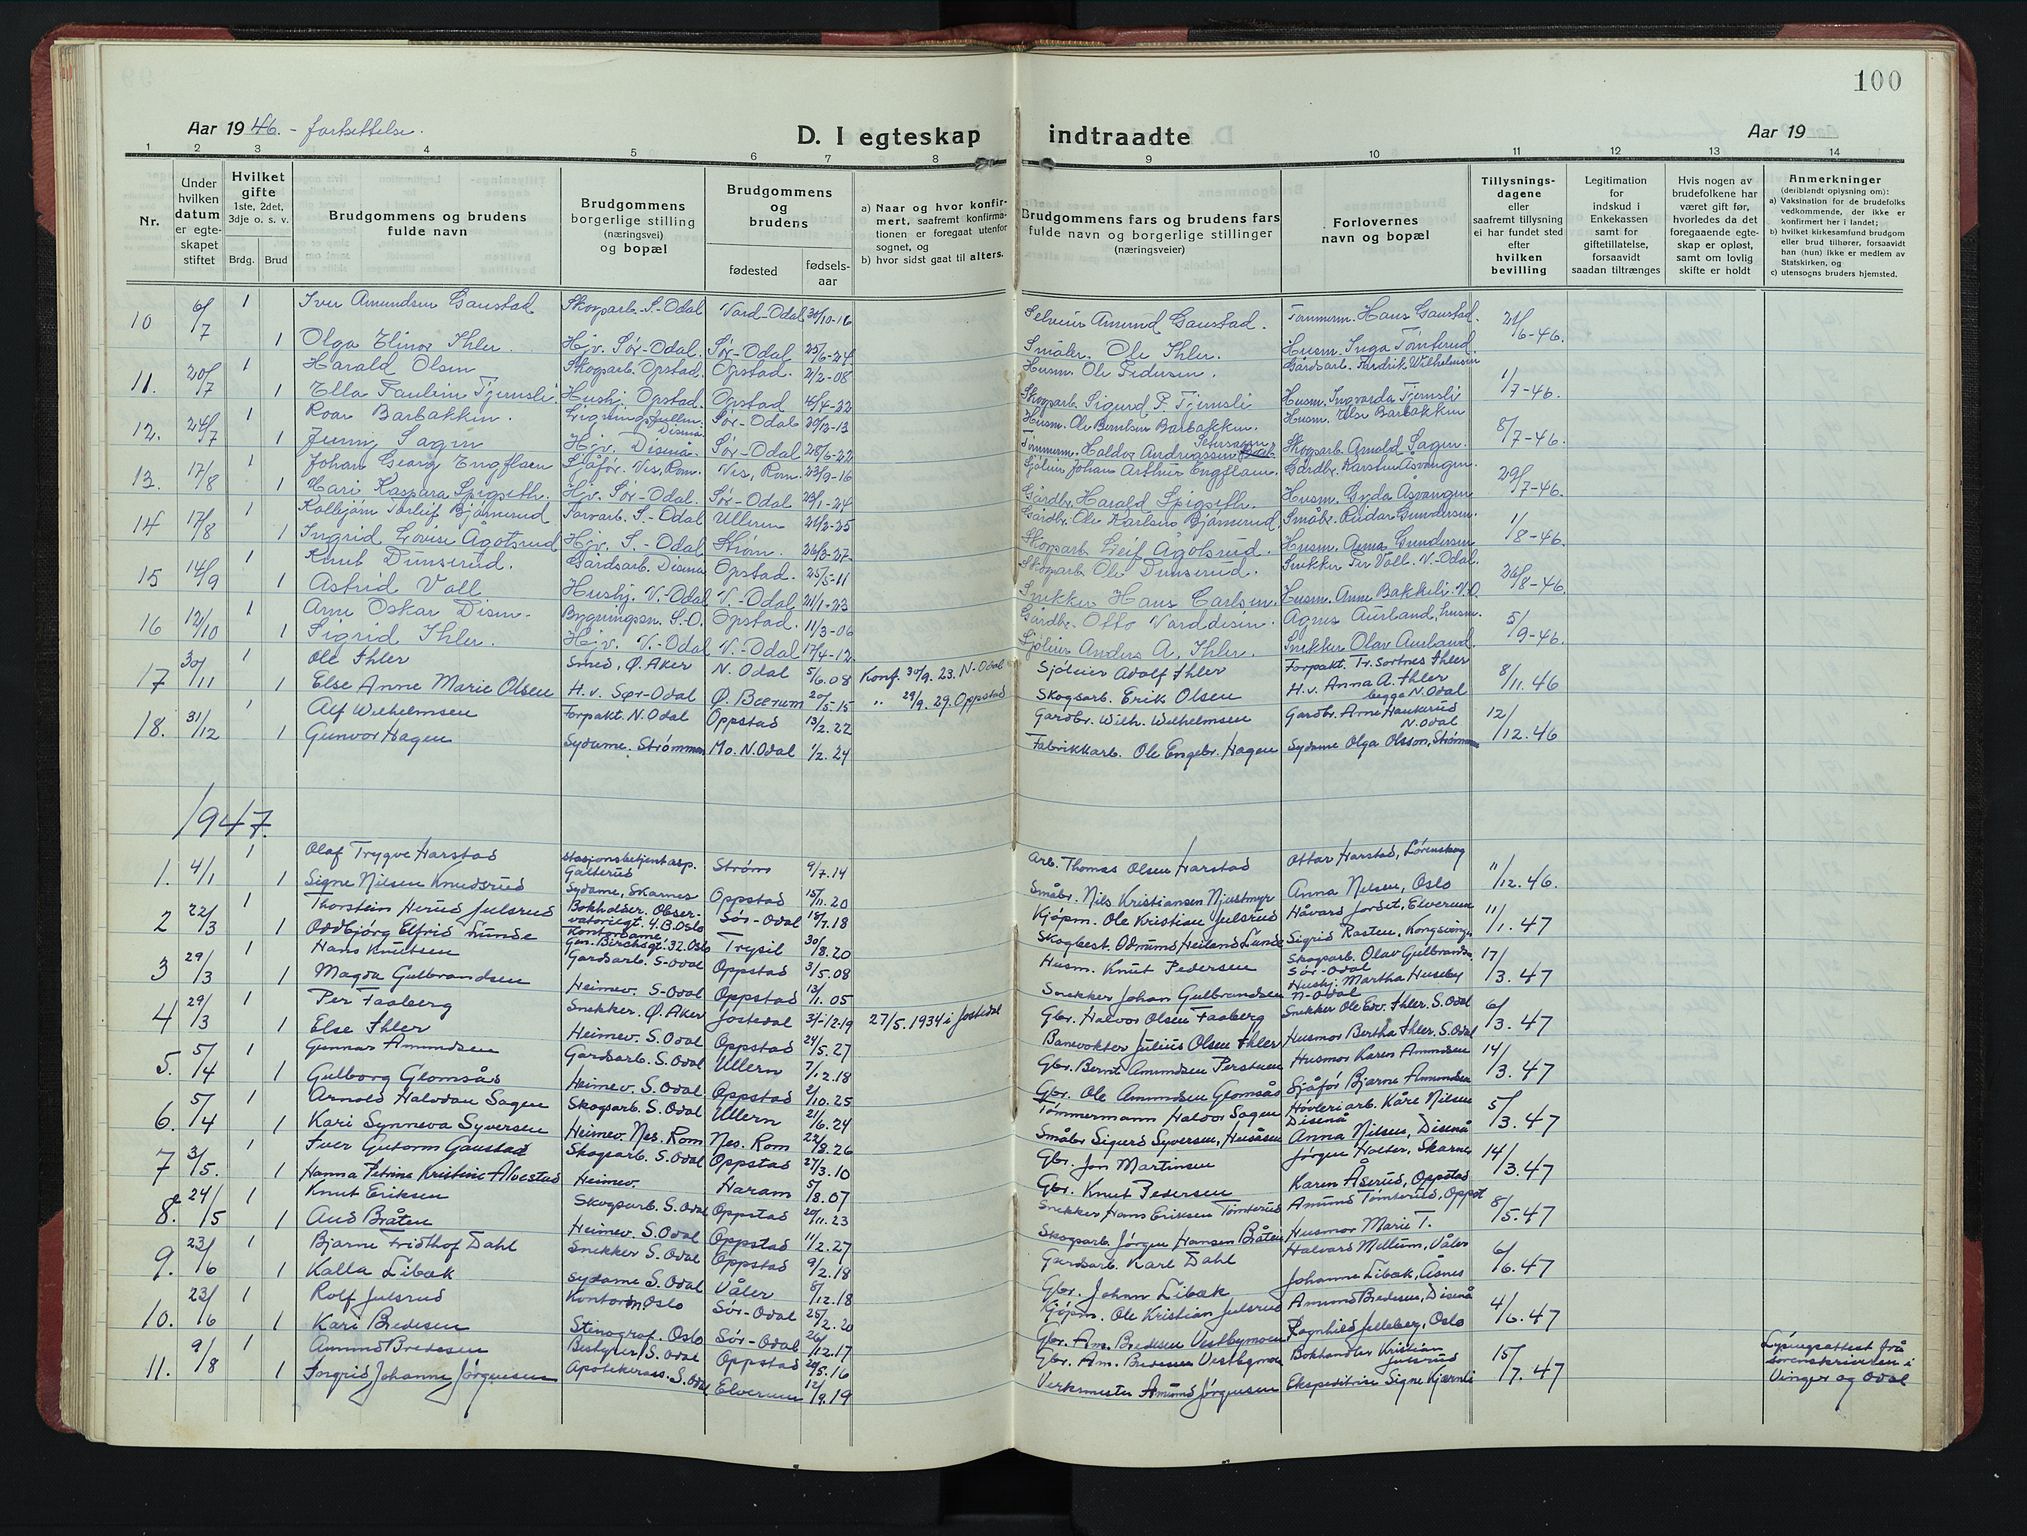 100
Aar 1946 - fortsettelse.
D. I egteskap indtraadte
Aar 19
1 2 3 4 5 6 7 8 9 10 11 12 13 14
Nr.
Under hvilken datum er egteskapet stiftet
Hvilket gifte 1ste, 2det, 3dje o. s. v.
Brdg. Brud
Brudgommens og brudens fulde navn
Brudgommens borgerlige stilling (næringsvei) og bopæl
Brudgommens og brudens
fødested fødselsaar
a) Naar og hvor konfirmert, saafremt konfirmationen er foregaat utenfor sognet, og
b) hvor sidst gaat til alters.
Brudgommens fars og brudens fars fulde navn og borgerlige stillinger (næringsveier)
Forlovernes navn og bopæl
Tillysningsdagene eller saafremt tillysning ei har fundet sted efter hvilken bevilling
Legitimation for indskud i Enkekassen samt for giftetillatelse, forsaavidt saadan tiltrænges
Hvis nogen av brudefolkene har været gift før, hvorledes da det foregaaende egteskap er opløst, samt om lovlig skifte er holdt
Anmerkninger (deriblandt oplysning om):
a) Vaksination for de brudefolks vedkommende, der ikke er konfirmert her i landet;
b) hvilket kirkesamfund brudgom eller brud tilhører, forsaavidt han (hun) ikke er medlem av Statskirken, og
c) utensogns bruders hjemsted.
10 6/7 1 Iver Amundsen Gaustad Skogsarb. S.-Odal Nord-Odal 30/10-16 Selveier Amund Gaustad. Tømmerm. Hans Gaustad. 21/6-46
1 Olga Elinor Ihler. Hjv. Sør-Odal. Sør-Odal 25/6-24 Småbr. Ole Ihler. Husm. Inga Tømterud.
11. 20/7 1 Harald Olsen Skogsarb. Opstad. Opstad. 2/2-08 Husm. Ole Pedersen. Gårdsarb. Fredrik Wilhelmsen 1/7-46.
1 Ella Paulin Tjernsli. Hushj. Opstad. Opstad 15/4-22 Skogsarb. Sigurd P. Tjernsli Husm. Ingvarda Tjernsli
12. 24/7 1 Roar Barbakken. Sør-Odal 29/12-13 Husm. Ole Berntsen Barbakken. Husm. Else Barbakken 8/7-46.
1 Jenny Sagen Hjv. Disenå. Sør-Odal. 28/6-22 Tømmerm. Haldor Andreassen Skogsarb. Arnold Sagen.
13. 17/8 1 Johan Georg Engflaen Sjåfør. Nes, Rom. Nes, Rom. 23/9-16 Sjøleier Johan Arthur Engflaen Gårdbr. Karsten Åsvangen. 29/7-46.
1 Mari Kaspara Spigseth. Hjv. Sør-Odal. Sør-Odal 23/1-24 Gårdbr. Harald Spigseth. Husm. Gyda Åsvangen
14 17/8 1 Kolbjørn Torleif Bjørnerud S.-Odal Ullern 21/2-25 Gårdbr. Ole Karlsen Bjørnerud. Småbr. Reidar Gundersen. 1/8-46.
1 Ingrid Lovise Ågotsrud Hjv. S.-Odal Strøm. 26/3-27 Skogsarb Leif Ågotsrud. Husm. Anna Gundersen
15 14/9 1 Knut Dunserud. Gårdsarb. Disenå Opstad. 25/5-11 Skogsarb Ole Dunserud. Snekker Per Voll. V.-Odal. 26/8-46.
1 Astrid Voll Hushj. V.-Odal V.-Odal 21/1-23 Snekker Hans Carlsen. Husm. Anne Bakkeli. N.O.
16 12/10 1 Arne Oskar Disen. Bygningssn. S.O. Opstad. 11/3-06 Gårdbr. Otto Norddisen. Agnes Aurland, husm. 5/9-46.
1 Sigrid Ihler. Hjv. V.-Odal V.-Odal 17/4-12. Sjøleier Anders A. Ihler. Snekker Olav Aurland.
17 30/11 1 Ole Ihler Smed, Ø. Aker N. Odal 5/6.08 Konf. 30/9. 23. N-Odal Sjøleier Adolf Ihler Forpakt. Tr. Sortnes Ihler 8/11. 46
1 Else Anne Marie Olsen H. v. Sør-Odal Ø. Bærum 20/5-15 " 29/9. 29. Oppstad Skogsarb. Erik Olsen H. v. Anna A. Ihler begge N. Odal
18. 31/12 1 Alf Wilhelmsen Forpakt. N. Odal Oppstad 13/2. 22 Gardbr. Wilh. Wilhelmsen Gardbr. Arne Haukerud N. Odal 12/12. 46
1 Gunvor Hagen Sydame. Strømmen Mo. N. Odal 1/2. 24 Fabrikkarb. Ole Engebr. Hagen Sydame Olga Olsson, Strømmen
1947.
1. 4/1 1 Olaf Trygve Harstad Stasjonsbetjent asp. Galterud Strøm 9/7. 14 Arb. Thomas Olsen Harstad Ottar Harstad, Lørenskog 11/12. 46.
1 Signe Nilsen Knudsrud Sydame, Skarnes Oppstad 15/11. 20 Småbr. Nils Kristiansen Njustmyr Anna Nilsen, Oslo
2 22/3 1 Thorstein Herud Julsrud Bokholder. Observatoriegt. 4. B. Oslo Sør-Odal 18/7. 18 Kjøpm. Ole Kristian Julsrud Håvard Jordet, Elverum 11/1. 47
1 Oddbjørg Elfrid Lunde Kontordame Gen. Birchsgt. 32. Oslo Trysil 30/8. 20 Skogbest. Odmund Heiland Lunde Sigrid Rasten, Kongsving.
3 29/3 1 Hans Knutsen Gardsarb. S-Odal Oppstad 3/5. 08 Husm. Knut Pedersen Skogsarb. Olav Gulbrands. Sør-Odal 17/3. 47
1 Magda Gulbrandsen Heimev. S-Odal Oppstad 13/1. 05 Snekker Johan Gulbrandsen Hushj. Martha Huseby N-Odal
4 29/3 1 Per Faaberg Snekker. Ø. Aker Jostedal 31-12-19 27/5. 1934 i Jostedal Gbr. Halvor Olsen Faaberg Snekker Ole Edv. Ihler. S. Odal 6/3. 47
1 Else Ihler Heimev. S. Odal Oppstad 24/5. 27 Banevokter Julius Olsen Ihler Husmor Bertha Ihler. S. Odal
5. 5/4 1 Gunnar Amundsen Gardsarb. S. Odal Ullern 7/12. 18 Gbr. Bernt. Amundsen Perstuen Husmor Karen Amundsen 14/3. 47
1 Gulborg Glomsås Heimev. S. Odal Oppstad 2/10. 25 Gbr. Ole Amundsen Glomsås Sjåfør Bjarne Amundsen
6. 5/4 1 Arnold Halvdan Sagen Skogsarb. S. Odal Ullern 21/6. 24 Tømmermann Haldor Sagen Høvleriarb. Kåre Nilsen Disenå 5/3. 47
1 Kari Synneva Syversen Heimev. Nes. Rom Nes. Rom 22/8. 26 Småbr Sigurd Syversen, Husåsen Anna Nilsen, Disenå
7 3/5. 1 Iver Gutorm Gaustad Skogsarb. S. Odal Oppstad 27/3. 10 Gbr. Jon Martinsen Jørgen Holter, Skarnes 14/3. 47
1 Hanna Petrina Kristine Alvestad Heimev. Haram 5/8. 07 Gbr. Knut Pedersen Karen Åserud, Oppstad
8. 24/5 1 Knut Eriksen Skogsarb. S. Odal Oppstad 20/11. 23 Snekker Hans Eriksen Tømterud Amund Tømterud, Oppst 8/5. 47
1 Aud Bråten Heimev. S. Odal Oppstad 11/2. 27 Skogsarb. Jørgen Hansen Bråten Husmor Marie T.
9. 23/6 1 Bjarne Fridthof Dahl Snekker S. Odal Oppstad 9/2. 18 Gardsarb. Karl Dahl Halvard Mellum, Våler 6/6. 47
1 Kalla Libæk Sydame S. Odal Våler 8/12. 18 Gbr. Johan Libæk Johanne Libæk, Åsnes
10. 23/6 1 Rolf Julsrud Kontorm Oslo Sør-Odal 25/2. 20 Kjøpm. Ole Kristian Julsrud Amund Bredesen, Disenå 4/6. 47
1 Kari Bredesen Stenograf. Oslo Sør-Odal 26/12. 17 Gbr. Am. Bredesen Vestbymoen Ragnhild Jelleberg, Oslo
11. 9/8 1 Amund Bredesen Bestyrer, S. Odal Oppstad 20/5. 16 Gbr. Am. Bredesen Vestbymoen Bokhandler Kristian Julsrud 15/7. 47 Lysningsattest frå sorenskriveren i Vinger og Odal
1 Ingrid Johanne Jørgensen Apotekerass. S. Odal Elverum 12/9. 19 Verksmester Amund Jørgensen Ekspeditrise Signe Kjernli